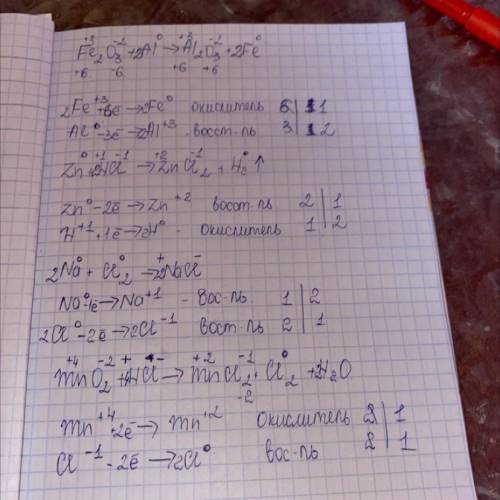 +3 -1 0 +3 -1 0
Fe₂O₃ + 2Al → Al₂O₃ + 2Fe
+6 -6 +6 +6
2Fe⁺³ +6ē → 2Fe⁰ окислитель 6 | 1
Al⁰ -3ē → 2Al⁺³ восст-ль 3 | 2
0 +1 -1 +2 -1 0
Zn + 2HCl → ZnCl₂ + H₂ ↑
Zn⁰ -2ē → Zn⁺² восст-ль 2 | 1
H⁺¹ +1ē → 2H⁰ - окислитель 1 | 2
2Na⁰ + Cl⁰₂ → 2Na⁺Cl⁻
Na⁰ -1ē → Na⁺¹ - вос-ль 1 | 2
2Cl⁰ -2ē → 2Cl⁻¹ восст-ль 2 | 1
+4 -2 + - +2 -1 0
MnO₂ + 4HCl → MnCl₂ + Cl₂ + 2H₂O
-2
Mn⁺⁴ +2ē → Mn⁺² окислитель 2 | 1
Cl⁻¹ -2ē → 2Cl⁰ вос-ль 2 | 1